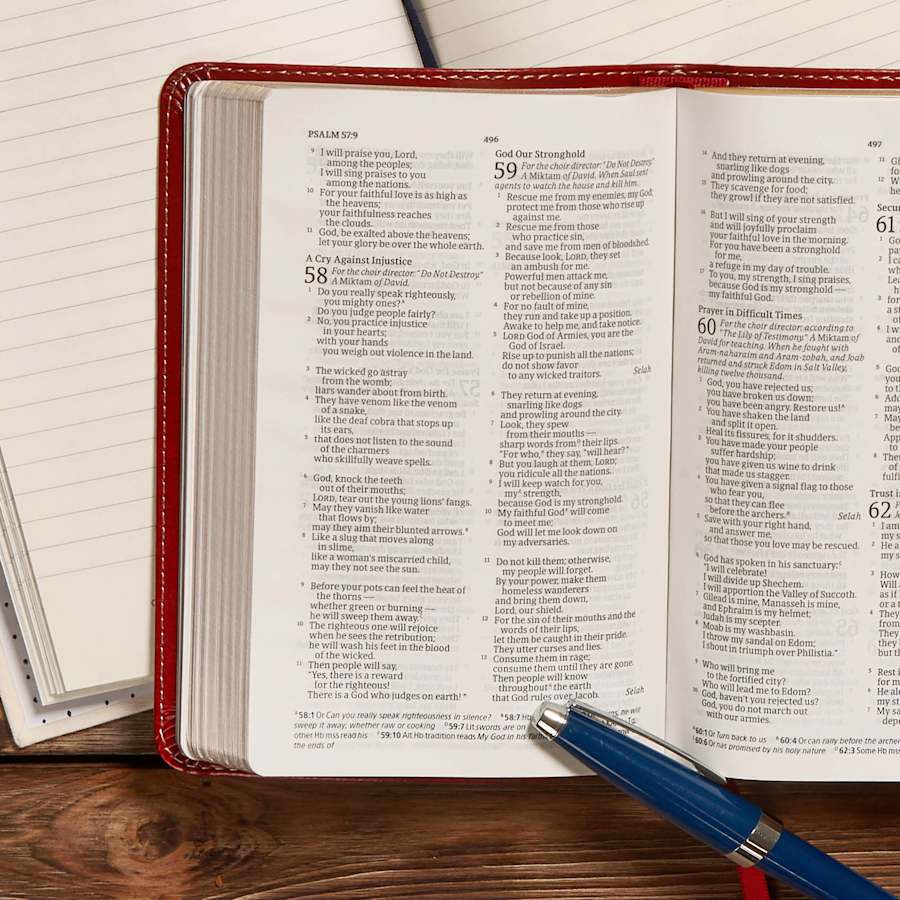 PSALM 57:9
496
9 I will praise you, Lord,
among the peoples;
I will sing praises to you
among the nations.
10 For your faithful love is as high as
the heavens;
your faithfulness reaches
the clouds.
11 God, be exalted above the heavens;
let your glory be over the whole earth.
A Cry Against Injustice
58 For the choir director: "Do Not Destroy."
A Miktam of David.
1 Do you really speak righteously,
you mighty ones?ᴬ
Do you judge people fairly?
2 No, you practice injustice
in your hearts;
with your hands
you weigh out violence in the land.
3 The wicked go astray
from the womb;
liars wander about from birth.
4 They have venom like the venom
of a snake,
like the deaf cobra that stops up
its ears,
5 that does not listen to the sound
of the charmers
who skillfully weave spells.
6 God, knock the teeth
out of their mouths;
LORD, tear out the young lions' fangs.
7 May they vanish like water
that flows by;
may they aim their blunted arrows.ᴮ
8 Like a slug that moves along
in slime,
like a woman's miscarried child,
may they not see the sun.
9 Before your pots can feel the heat of
the thorns —
whether green or burning —
he will sweep them away.ᶜ
10 The righteous one will rejoice
when he sees the retribution;
he will wash his feet in the blood
of the wicked.
11 Then people will say,
"Yes, there is a reward
for the righteous!
There is a God who judges on earth!"
God Our Stronghold
59 For the choir director: "Do Not Destroy."
A Miktam of David. When Saul sent
agents to watch the house and kill him.
1 Rescue me from my enemies, my God;
protect me from those who rise up
against me.
2 Rescue me from those
who practice sin,
and save me from men of bloodshed.
3 Because look, LORD, they set
an ambush for me.
Powerful men attack me,
but not because of any sin
or rebellion of mine.
4 For no fault of mine,
they run and take up a position.
Awake to help me, and take notice.
5 LORD God of Armies, you are the
God of Israel.
Rise up to punish all the nations;
do not show favor
to any wicked traitors. Selah
6 They return at evening,
snarling like dogs
and prowling around the city.
7 Look, they spew
from their mouths —
sharp words from their lips.
"For who," they say, "will hear?"
8 But you laugh at them, LORD;
you ridicule all the nations.
9 I will keep watch for you,
my strength,
because God is my stronghold.
10 My faithful God will come
to meet me;
God will let me look down on
my adversaries.
11 Do not kill them; otherwise,
my people will forget.
By your power, make them
homeless wanderers
and bring them down,
Lord, our shield.
12 For the sin of their mouths and the
words of their lips,
let them be caught in their pride.
They utter curses and lies.
13 Consume them in rage;
consume them until they are gone.
Then people will know
throughout the earth
that God rules over Jacob. Selah
ᴬ58:1 Or Can you really speak righteousness in silence? ᴮ58:7 Hb
sweep it away, whether raw or cooking 59:7 Lit swords are on
other Hb mss read his 59:10 Alt Hb tradition reads My God in his
the ends of
497
14 And they return at evening,
snarling like dogs
and prowling around the city.
15 They scavenge for food;
they growl if they are not satisfied.
16 But I will sing of your strength
and will joyfully proclaim
your faithful love in the morning.
For you have been a stronghold
for me,
a refuge in my day of trouble.
17 To you, my strength, I sing praises,
because God is my stronghold —
my faithful God.
Prayer in Difficult Times
60 For the choir director: according to
"The Lily of Testimony." A Miktam of
David for teaching. When he fought with
Aram-naharaim and Aram-zobah, and Joab
returned and struck Edom in Salt Valley,
killing twelve thousand.
1 God, you have rejected us;
you have broken us down;
you have been angry. Restore us!ᴬ
2 You have shaken the land
and split it open.
Heal its fissures, for it shudders.
3 You have made your people
suffer hardship;
you have given us wine to drink
that made us stagger.
4 You have given a signal flag to those
who fear you,
so that they can flee
before the archers.ᴮ Selah
5 Save with your right hand,
and answer me,
so that those you love may be rescued.
6 God has spoken in his sanctuary:ᶜ
"I will celebrate!
I will divide up Shechem.
I will apportion the Valley of Succoth.
7 Gilead is mine, Manasseh is mine,
and Ephraim is my helmet;
Judah is my scepter.
8 Moab is my washbasin.
I throw my sandal on Edom;
I shout in triumph over Philistia."
9 Who will bring me
to the fortified city?
Who will lead me to Edom?
10 God, haven't you rejected us?
God, you do not march out
with our armies.
ᴬ60:1 Or Turn back to us ᴮ60:4 Or can rally before the archers
ᶜ60:6 Or has promised by his holy nature ᴰ62:3 Some Hb mss
61
62
Trust i